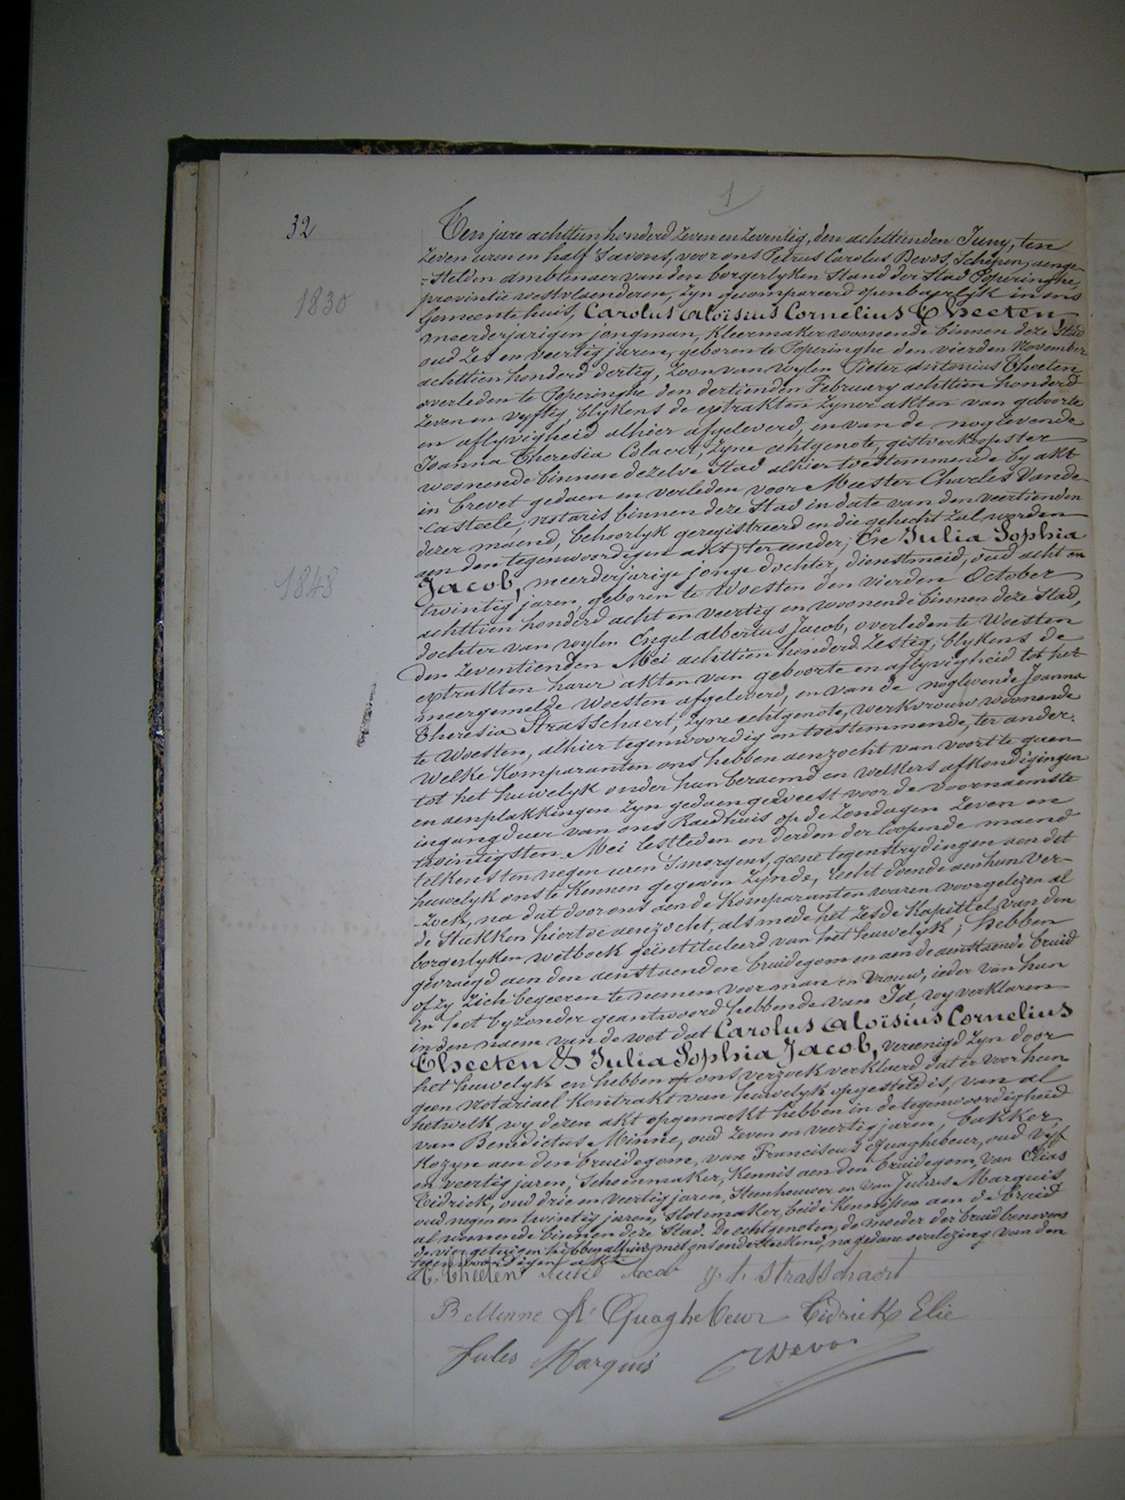 1
32
Ten jare achttien honderd zeven en zeventig, den achttienden Juny, ten
zeven uren en half 's avonds, voor ons Petrus Carolus Devos, Schepen, aenge-
-stelden ambtenaer van den borgerlyken Stand der Stad Poperinghe,
provintie westvlaenderen, zyn gecompareerd openbaerlyk in ons
1830
Gemeentehuis, Carolus Aloïsius Cornelius Theeten,
meerderjarigen jongman, Kleermaker woonende binnen deze Stad
oud zes en veertig jaren, geboren te Poperinghe den vierden November
achttien honderd dertig, zoon van wylen Pieter Antonius Theeten
overleden te Poperinghe den dertienden February achttien honderd
zeven en vyftig, blykens de extrakten zyner akten van geboorte
en aflyvigheid alhier afgeleverd, en van de noglevende
Joanna Theresia Colaert, zyne echtgenote, gistverkoopster
woonende binnen dezelve Stad alhier toestemmende by akt
in brevet gedaen en verleden voor Meester Charles Vande-
-casteele, notaris binnen deze Stad in date van den veertienden
dezer maend, behoorlyk geregistreerd en die gehecht zal worden
aen den tegenwoordigen akt, ter eender; Ene Julia Sophia
1848
Jacob, meerderjarige jonge dochter, dienstmeid, oud acht en
twintig jaren, geboren te Woesten den vierden October
achttien honderd acht en veertig en woonende binnen deze Stad,
dochter van wylen Engel Albertus Jacob, overleden te Woesten
den zeventienden Mei achttien honderd zestig, blykens de
extrakten harer akten van geboorte en aflyvigheid tot het
meergemelde Woesten afgeleverd, en van de noglevende Joanna
Theresia Strasschaert, zyne echtgenote, werkvrouw woonende
te Woesten, alhier tegenwoordig en toestemmende, ter ander.
Welke Komparanten ons hebben aenzocht van voort te gaen
tot het huwelyk onder hun beraemd en welkers afkondigingen
en aenplakkingen zyn gedaen geweest voor de voornaemste
ingangdeur van ons Raedhuis op de zondagen zeven en
twintigsten Mei lestleden en derden der loopende maend
telkens ten negen uren 's morgens, geene tegenstrydingen aen dat
huwelyk ons te kennen gegeven zynde, recht doende aen hun ver-
-zoek, na dat door ons aen de Komparanten waren voorgelezen al
de Stukken hiertoe aenzocht, als mede het zesde Kapittel van den
borgerlyken wetboek geïntituleerd van het huwelyk; hebben
gevraegd aen den aenstaenden bruidegom en aen de aenstaende bruid
of zy zich begeeren te nemen voor man en vrouw, ieder van hun
in het byzonder geantwoord hebbende van Ja, wy verklaren
in den naem van de wet dat Carolus Aloïsius Cornelius
Theeten & Julia Sophia Jacob, vereenigd zyn door
het huwelyk en hebben op ons verzoek verklaerd dat er voor hun
geen notariael Kontrakt van huwelyk opgesteld is, van al
hetwelk wy dezen akt opgemaekt hebben in de tegenwoordigheid
van Benedictus Minne, oud zeven en veertig jaren, bakker,
Kozyn aen den bruidegom, van Franciscus Quaghebeur, oud vyf
en veertig jaren, Schoenmaker, Kennis aen den bruidegom, van Elias
Tidrick, oud drie en veertig jaren, Steenhouwer en van Julius Marquis
oud negen en twintig jaren, Slotemaker, beide Kennissen aen de bruid
al woonende binnen deze Stad. De echtgenoten, de moeder der bruid benevens
de vier getuigen hebben alhier met ons onderteekend, na gedane voorlezing van den
tegenwoordigen akt.
C. Theeten Julie Jacob J. T. Strasschaert
B Minne Fs Quaghebeur Tidrick Elie
Jules Marquis Devos